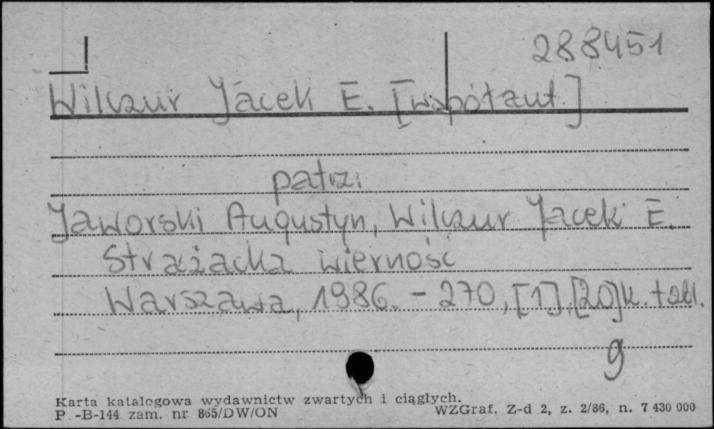 288451
Wilczur Jacek E. [współaut.]
patrz:
Jaworski Augustyn, Wilczur Jacek E.
Strażacka wierność
Warszawa, 1986. - 270, [1], [20] k. tabl.
g
Karta katalogowa wydawnictw zwartych i ciągłych.
P.-B-144 zam. nr 865/DW/ON WZGraf. Z-d 2, z. 2/86, n. 7 430 000